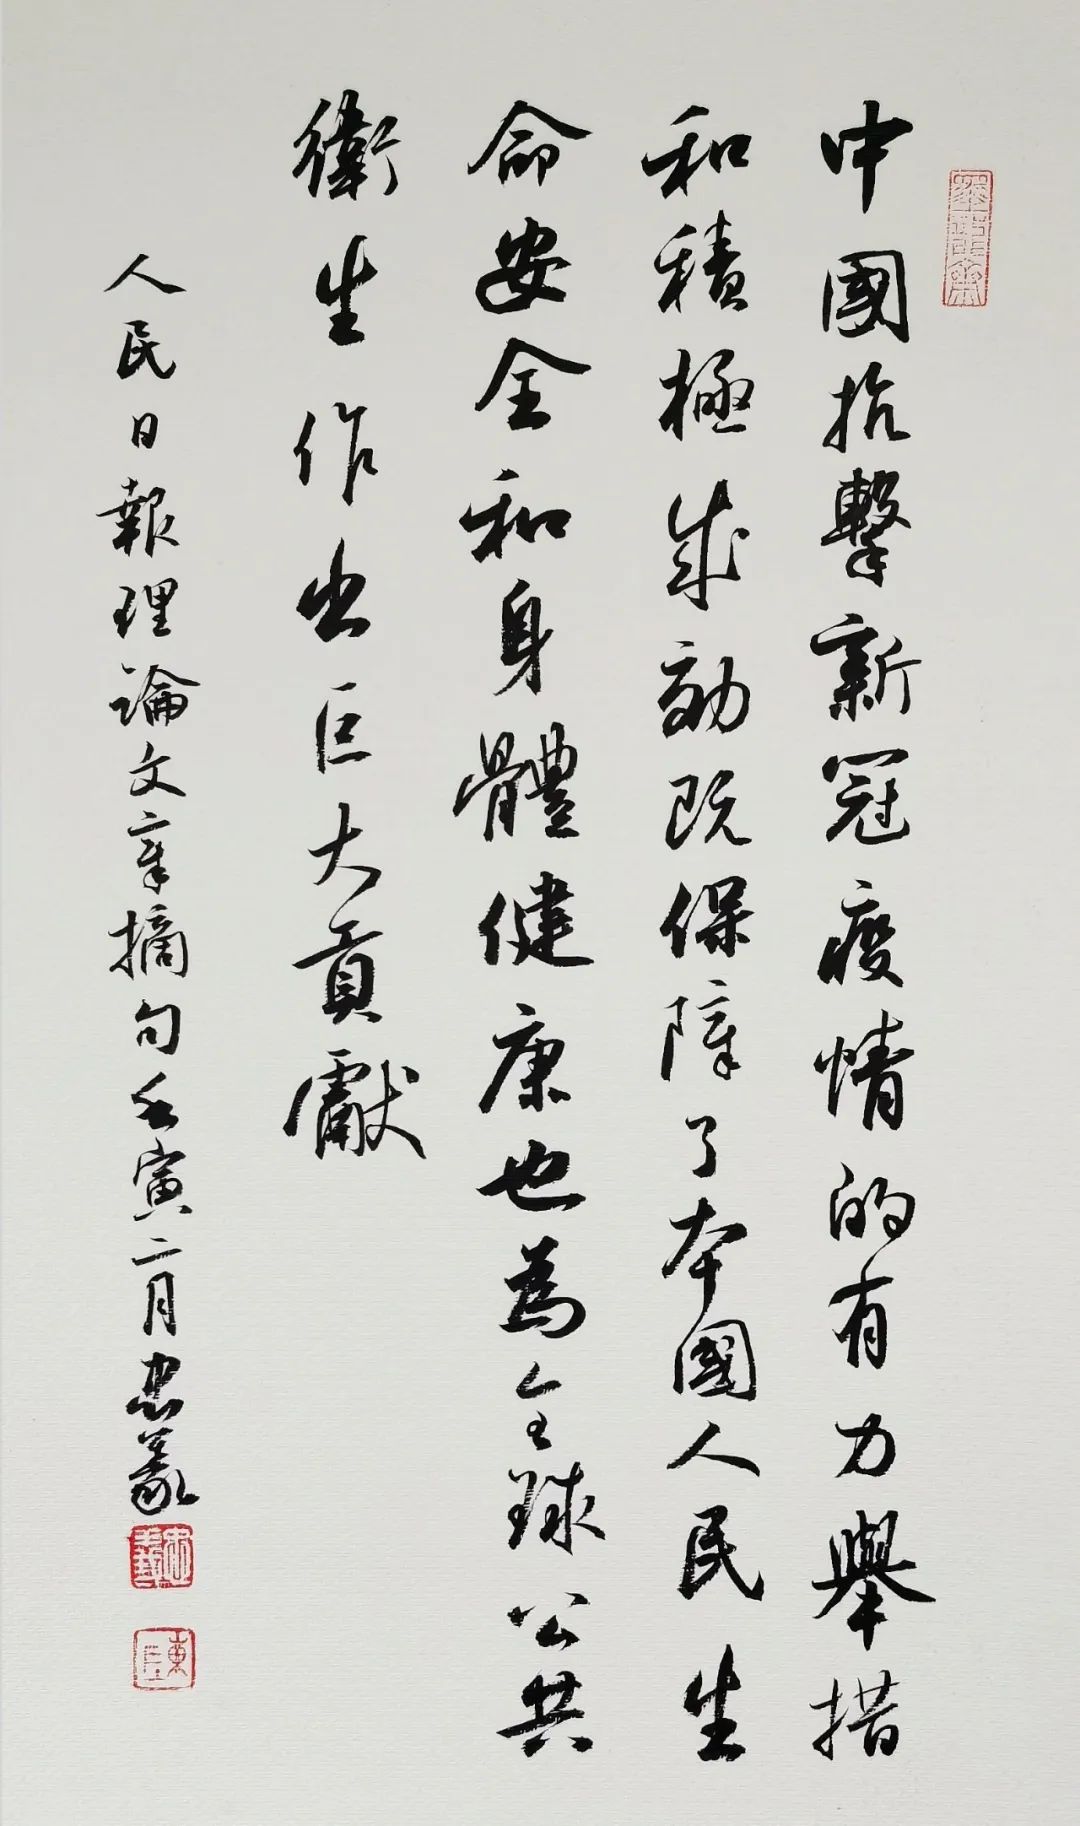 中國抗擊新冠疫情的有力舉措
和積極成效既保障了本國人民生
命安全和身體健康也為全球公共
衛生作出巨大貢獻
人民日報理論文章摘句壬寅二月忠義